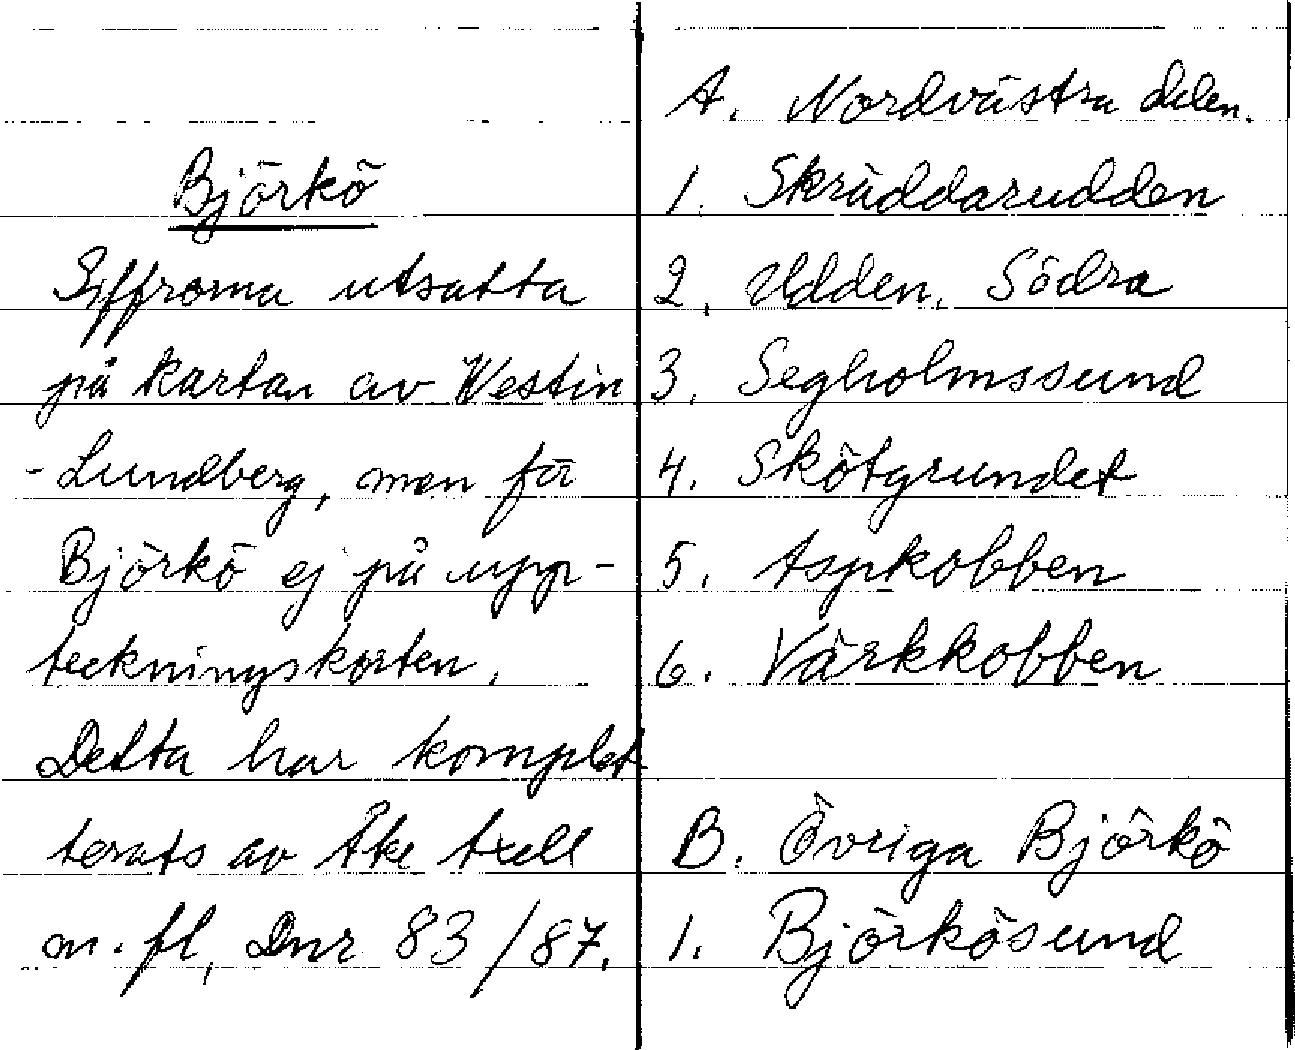 Björkö
Siffrorna utsatta
på kartan av Westin
-Lundberg, men för
Björkö ej på upp-
teckningskorten.
Detta har komplet
terats av Åke Axell
m. fl, Dnr 83/87.
A. Nordvästra delen.
1. Skräddarudden
2. Udden, Södra
3. Segholmssund
4. Skötgrundet
5. Aspkobben
6. Värkkobben
B. Övriga Björkö
1. Björkösund